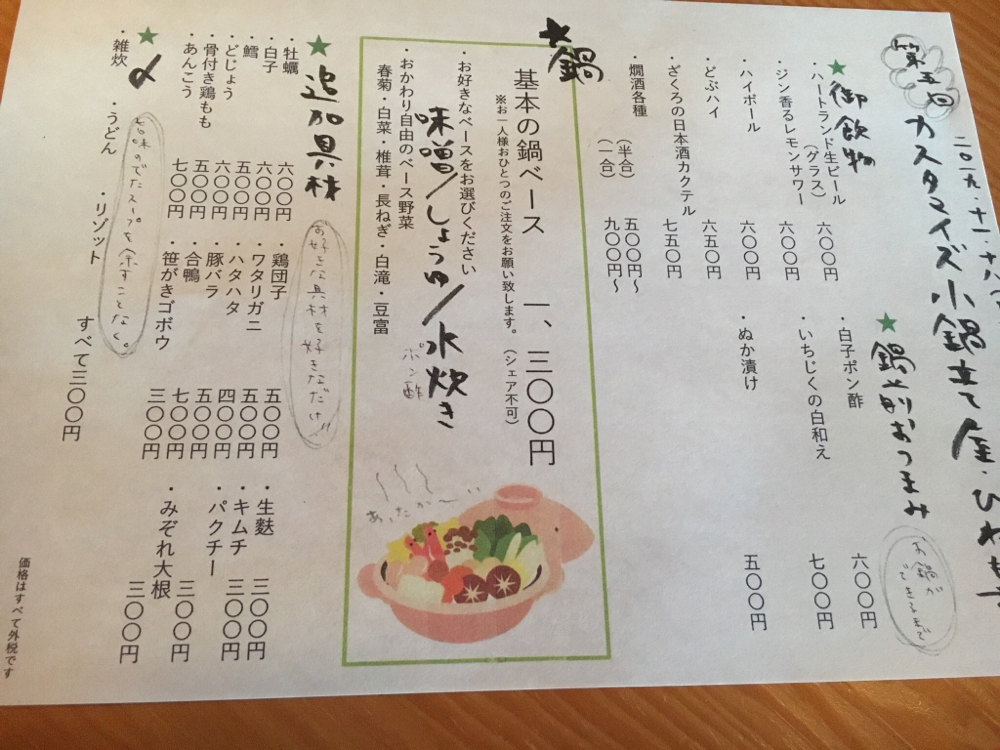 二〇一九・十一・十八
第五回 カスタマイズ小鍋立て屋・ひね
★御飲物
・ハートランド生ビール（グラス） 六〇〇円
・ジン香るレモンサワー 六〇〇円
・ハイボール 六〇〇円
・どぶハイ 六五〇円
・ざくろの日本酒カクテル 七五〇円
・燗酒各種
（半合） 五〇〇円～
（一合） 九〇〇円～
★鍋前おつまみ
お鍋ができるまで
・白子ポン酢 六〇〇円
・いちじくの白和え 七〇〇円
・ぬか漬け 五〇〇円
★鍋
基本の鍋ベース 一、三〇〇円
※お一人様おひとつのご注文をお願い致します。（シェア不可）
・お好きなベースをお選びください
味噌/しょうゆ/水炊き
ポン酢
・おかわり自由のベース野菜
春菊・白菜・椎茸・長ねぎ・白滝・豆富
あったか〜い
★追加具材
お好きな具材を好きなだけ!!
・牡蠣 六〇〇円
・白子 六〇〇円
・鱈 五〇〇円
・どじょう 六〇〇円
・骨付き鶏もも 五〇〇円
・あんこう 七〇〇円
・鶏団子 五〇〇円
・ワタリガニ 五〇〇円
・ハタハタ 四〇〇円
・豚バラ 五〇〇円
・合鴨 七〇〇円
・笹がきゴボウ 三〇〇円
・生麩 三〇〇円
・キムチ 三〇〇円
・パクチー 三〇〇円
・みぞれ大根 三〇〇円
★〆
旨味のでたスープを余すことなく。
・雑炊 ・うどん ・リゾット すべて三〇〇円
価格はすべて外税です